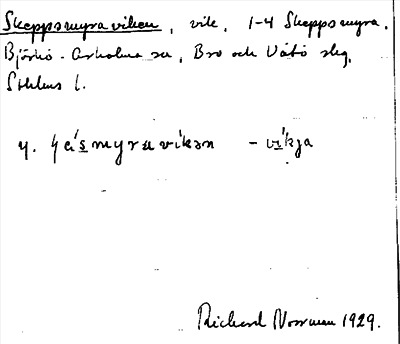 Skeppsmyraviken, vik, 1-4 Skeppsmyra.
Björkö-Arholma sn, Bro och Vätö skg,
Sthlms l.
y. ʃeísmyravíkən - víkja
Richard Norrman 1929.